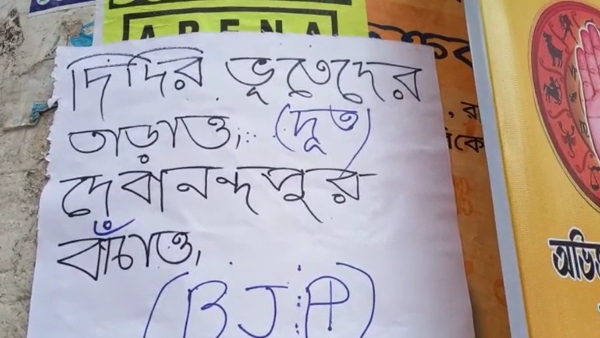 ARENA
দিদির ভূতেদের
তাড়াও, (দূত)
দেবানন্দপুর
বাঁচাও,
(BJP)